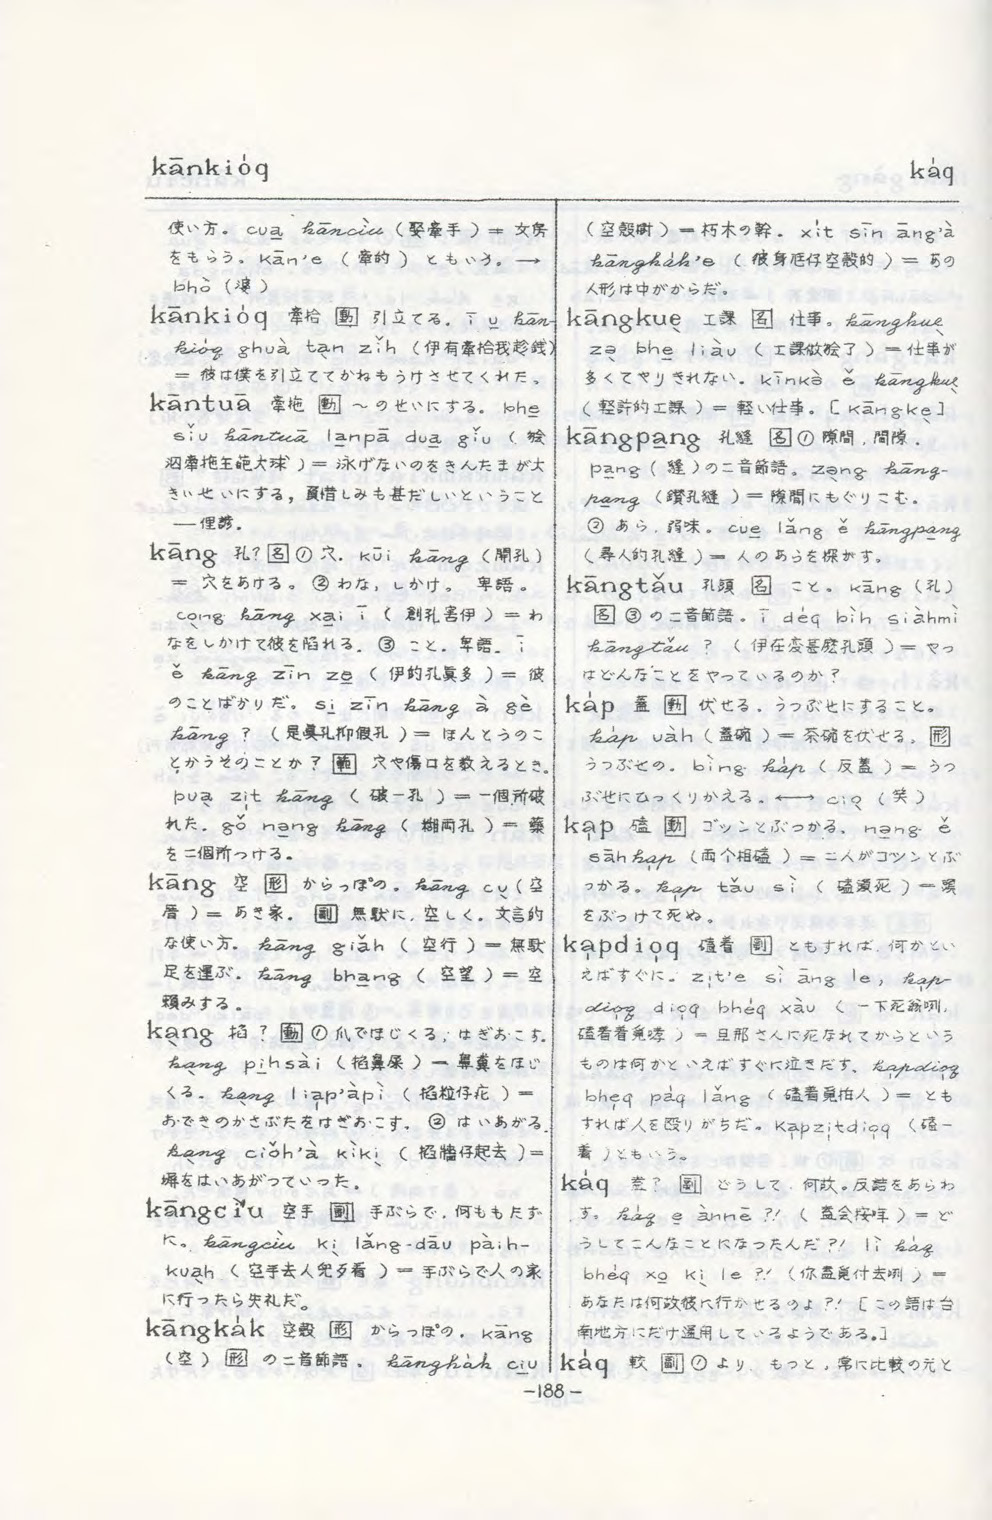 kānkióq
káq
使い方。cua̱ kāncìu (娶牽手) = 女房
をもらう。Kān'e (牽的) ともいう。→
bhò (婆)
kānkióq 牽拾 [動] 引立てる。ī u̱ kān-
kióq ghuà ta̱n zĭh (伊有牽拾我趁錢)
= 彼は僕を引立ててかねもうけさせてくれた。
kāntuā 牽拖 [動] 〜のせいにする。bhe̱
sĭu kāntuā la̱npā dua̱ gĭu (
泅牽拖 大球) = 泳げないのをきんたまが大
きいせいにする, 負惜しみも甚だしいということ
——俚諺。
kāng 孔? [名] ① 穴。Kūi kāng (開孔)
= 穴をあける。② わな, しかけ。卑語。
còng kāng xa̱i ī (創孔害伊) = わ
なをしかけて彼を陥れる。③ こと。卑語。ī
ĕ kāng zīn ze̱ (伊的孔眞多) = 彼
のことばかりだ。si̱ zīn kāng à gè
kāng ? (是眞孔抑假孔) = ほんとうのこ
とかうそのことか? 穴や傷口を数えるとき。
pua̱ zi̍t kāng (破一孔) = 一個所破
れた。gŏ no̱ng kāng (糊両孔) = 薬
を二個所つける。
kāng 空 [形] からっぽの。kāng cu̱ (空
厝) = あき家。[副] 無駄に, 空しく。文言的
な使い方。kāng giăh (空行) = 無駄
足を運ぶ。kāng bha̱ng (空望) = 空
頼みする。
ka̱ng 掐 ? [動] ① 爪でほじくる, はぎおこす。
ka̱ng pi̱hsài (掐鼻屎) = 鼻糞をほじ
くる。ka̱ng lia̍p'àpì (掐粒仔疕) =
おできのかさぶたをはぎおこす。② はいあがる。
ka̱ng ciŏh'à kìki̱ (掐牆仔起去) =
塀をはいあがっていった。
kāngcĭu 空手 [副] 手ぶらで, 何ももたず
に。kāngcìu ki̱ lăng-dāu pàih-
kua̱h (空手去人兜歹看) = 手ぶらで人の家
に行ったら失礼だ。
kāngkák 空殻 [形] からっぽの。Kāng
(空) [形] の二音節語。kāngkák ciu
(空殻樹) = 朽木の幹。xi̍t sīn āng'à
kāngkák'e (彼身尪仔空殻的) = あの
人形は中がからだ。
kāngkue̱ 工課 [名] 仕事。kāngkue̱
ze̱ bhe̱ liàu (工課做 了) = 仕事が
多くてやりきれない。Kīnkà ĕ kāngkue̱
(軽 的工課) = 軽い仕事。[Kāngke̱]
kāngpa̱ng 孔縫 [名] ① 隙間, 間隙。
pa̱ng (縫) の二音節語。ze̱ng kāng-
pa̱ng (鑽孔縫) = 隙間にもぐりこむ。
② あら, 弱味。cue̱ lăng ĕ kāngpa̱ng
(尋人的孔縫) = 人のあらを探がす。
kāngtău 孔頭 [名] こと。Kāng (孔)
[名] ③ の二音節語。ī déq bìh siàhmì
kāngtău ? (伊在変甚麽孔頭) = やつ
はどんなことをやっているのか?
káp 蓋 [動] 伏せる, うつぶせにすること。
káp uàh (蓋碗) = 茶碗を伏せる。[形]
うつぶせの。bìng káp (反蓋) = うつ
ぶせにひっくりかえる。←→ ciọ (笑)
ka̍p 磕 [動] ゴツンとぶつかる。nọng ĕ
sāh ka̍p (両个相磕) = 二人がコツンとぶ
つかる。ka̍p tău sì (磕頭死) = 頭
をぶっけて死ぬ。
ka̍pdio̍q 磕着 [副] ともすれば, 何かとい
えばすぐに。zi̍t'e sì āng le, ka̍p-
dio̍q dio̍q bhéq xàu (一下死翁咧,
磕着着覓哮) = 旦那さんに死なれてからという
ものは何かといえばすぐに泣きだす。ka̍pdio̍q
bhéq páq lăng (磕着覓拍人) = とも
すれば人を殴りがちだ。Ka̍pzi̍tdio̍q (磕一
着) ともいう。
káq 盍? [副] どうして, 何故。反詰をあらわ
す。káq e̱ ànnē ?! (盍会按年) = ど
うしてこんなことになったんだ?! lì káq
bhéq xo̱ ki̱ le ?! (你盍覓付去咧) =
あなたは何故彼に行かせるのよ?! [この語は台
南地方にだけ通用しているようである。]
káq 較 [副] ① より, もっと, 常に比較の元と
-188-